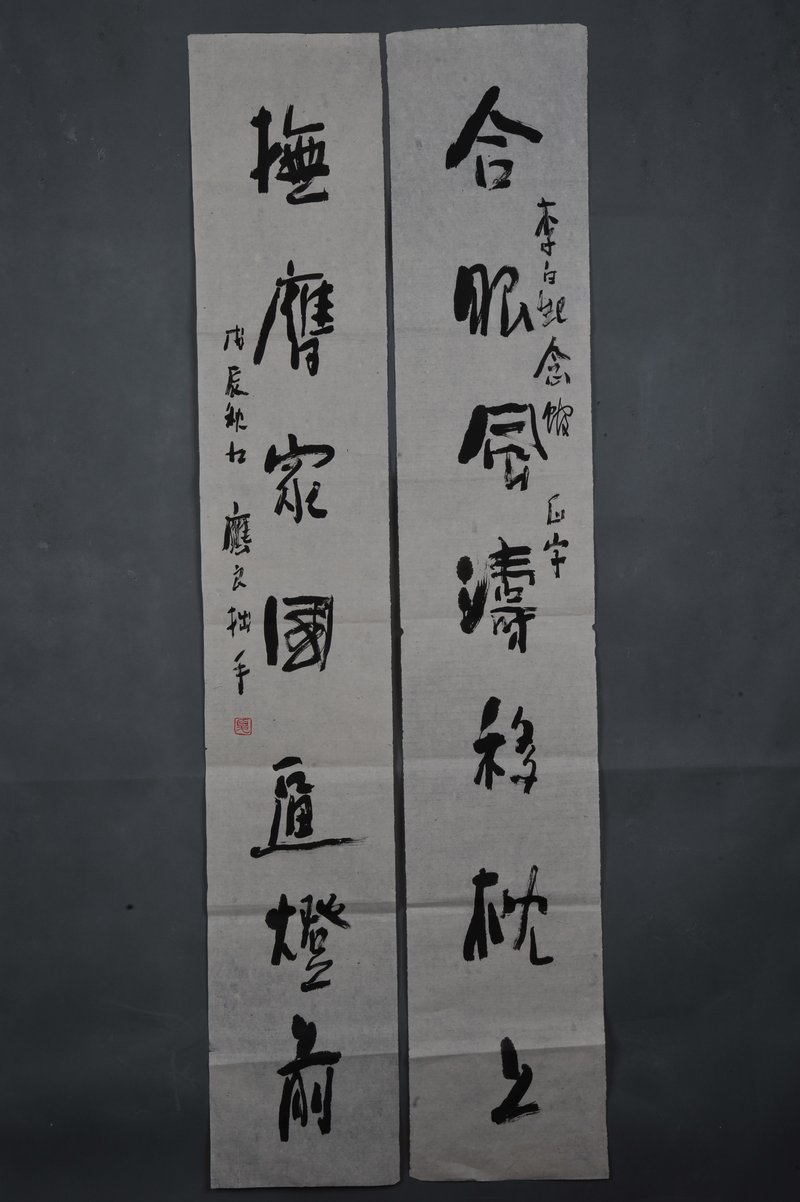 合眼風濤移枕上
李白紀念館 正字
撫膺家國逼燈前
戊辰秋 應良拙手